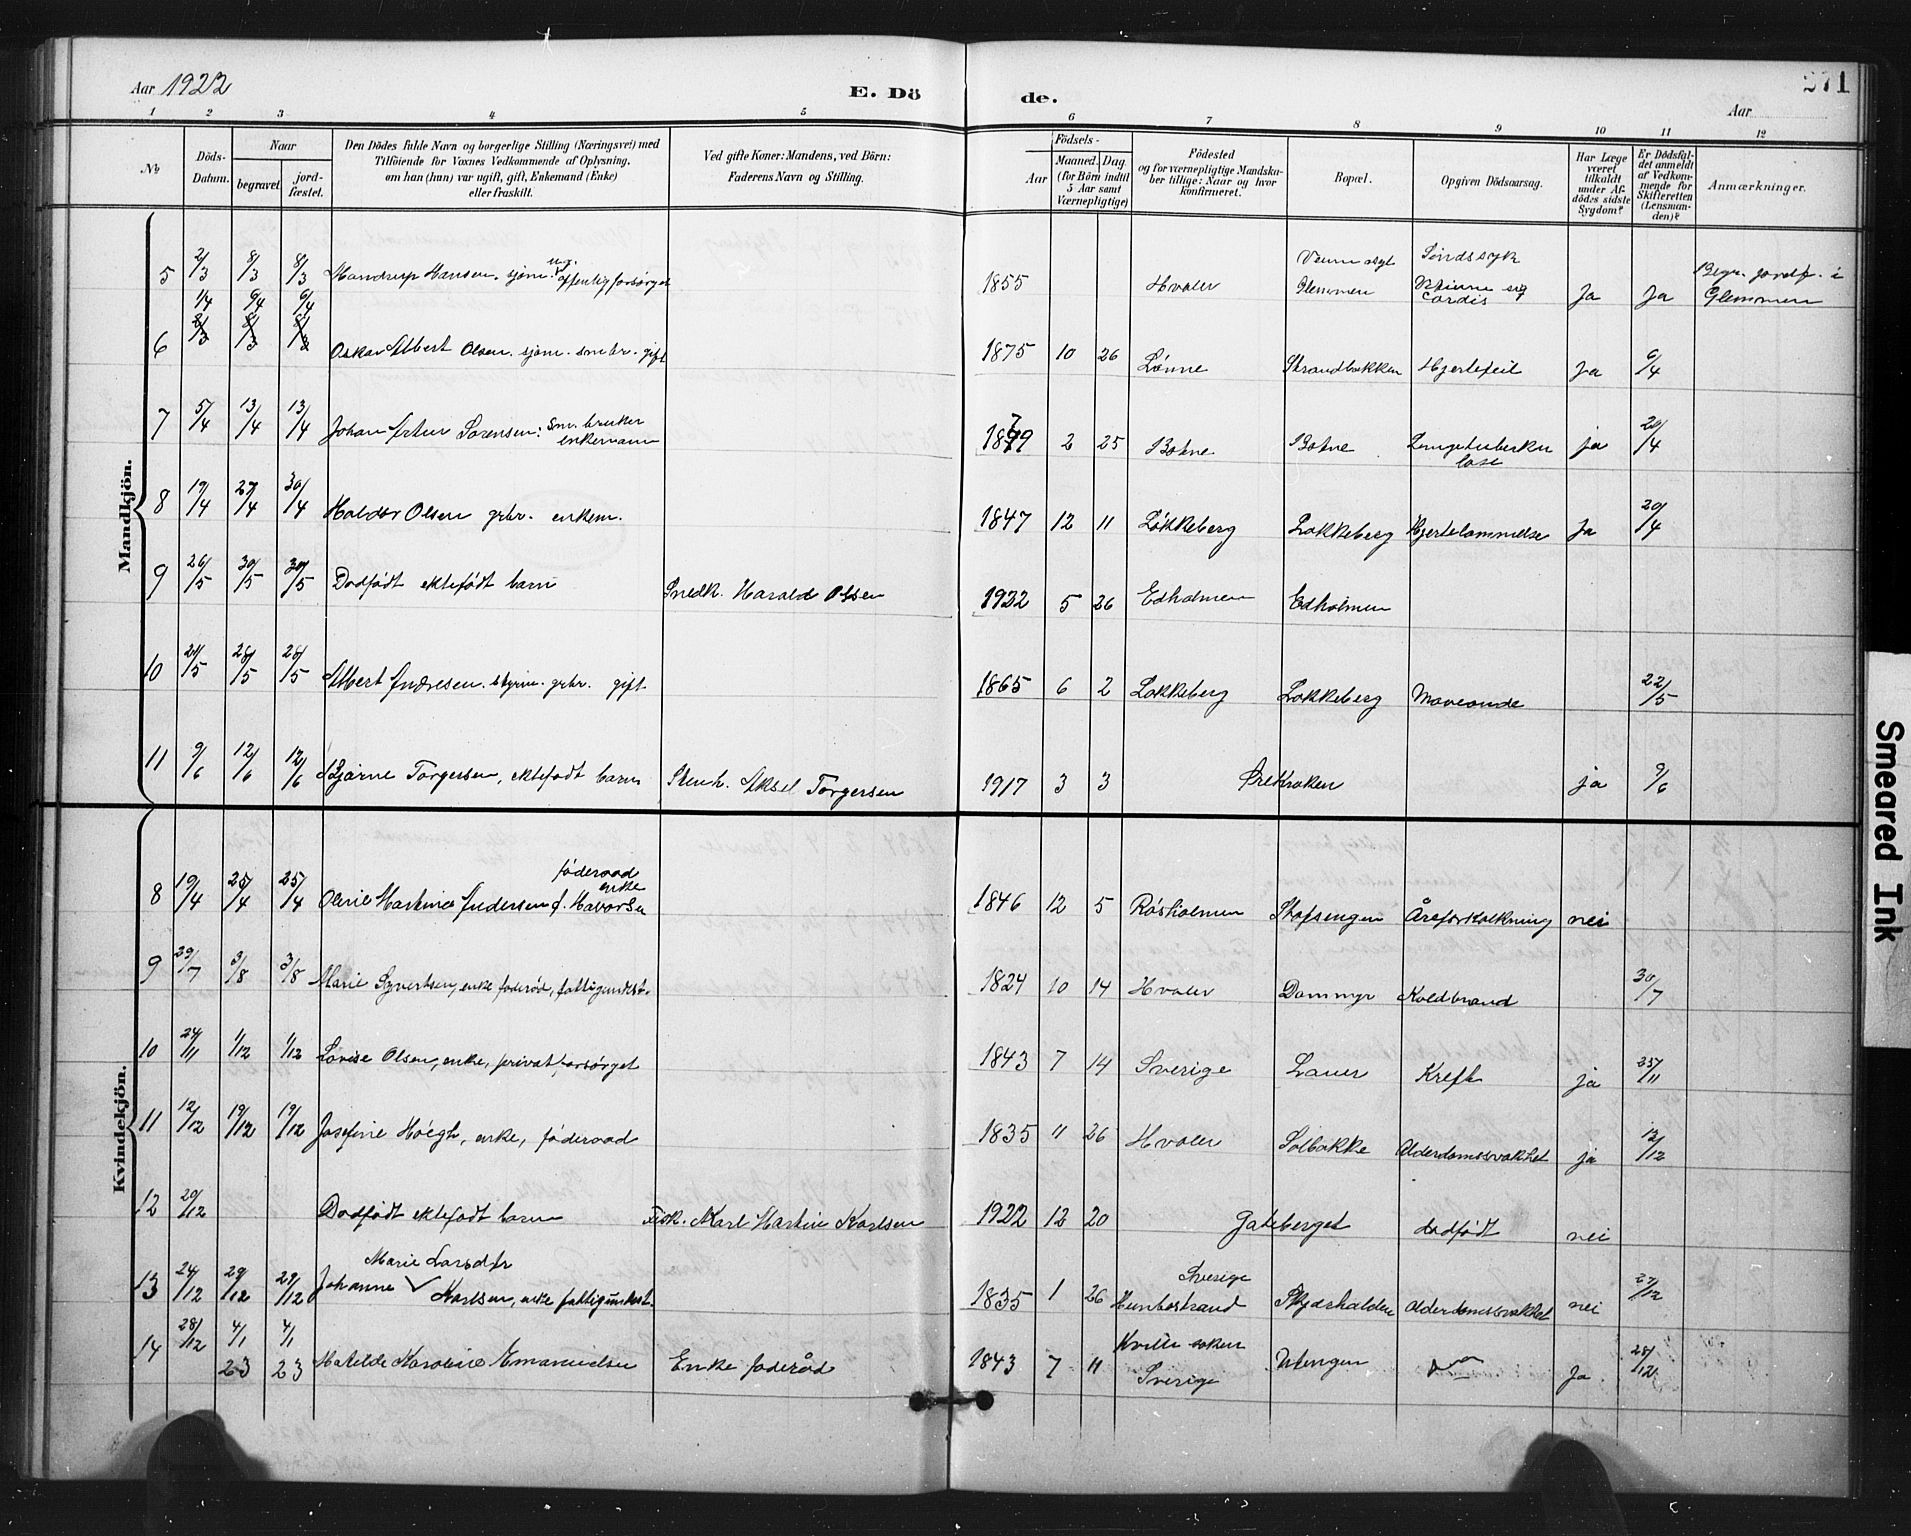 Aar 1922
E. Dö
de.
271
Aar
1 2 3 4 5 6 7 8 9 10 11 12
No
Döds-Datum.
Naar
begravet.
jord-fæstet.
Den Dödes fulde Navn og borgerlige Stilling (Næringsvei) med
Tilföiende for Voxnes Vedkommende af Oplysning,
om han (hun) var ugift, gift, Enkemand (Enke)
eller fraskilt.
Ved gifte Koner: Mandens, ved Börn:
Faderens Navn og Stilling.
Födsels-
Aar
Maaned. Dag
(for Börn indtil
5 Aar samt
Værnepligtige)
Födested
og for værnepligtige Mandska-
ber tillige: Naar og hvor
konfirmeret.
Bopæl.
Opgiven Dödsaarsag.
Har Læge
været
tilkaldt
under Af-
dödes sidste
Sygdom?
Er Dödsfal-
det anmeldt
af Vedkom-
mende for
Skifteretten
(Lensman-
den)?
Anmærkninger.
Mandkjön.
5 2/3 8/3 8/3 Handrup Hansen. sjøm. ug. offentlig forsørget 1855 Hvaler Glemmen Sindssyk cordis Ja Ja Begr. jordf. i Glemmen
6 1/4 6/4 6/4 Oskar Albert Olsen. sjøm. smbr. gift 1875 10 26 Lønne Strandbakken Hjertefeil Ja 6/4
7 5/4 13/4 13/4 Johan Artur Sørensen: smbruker enkemann 1879 2 25 Botne Botne Lungetuberkulose ja 20/4
8 19/4 27/4 30/4 Haldor Olsen grbr. enkem. 1847 12 11 Løkkeberg Løkkeberg Hjertelammelse Ja 20/4
9 26/5 30/5 30/5 Dødfødt ektefødt barn Snedk. Harald Olsen 1922 5 26 Edholmen Edholmen
10 21/5 28/5 28/5 Albert Andresen. grbr. gift 1865 6 2 Løkkeberg Løkkeberg Mavesonde 22/5
11 9/6 12/6 12/6 Bjarne Torgersen, ektefødt barn Stenh. Aksel Torgersen 1917 3 3 Ørekroken ja 9/6
Kvindekjön.
8 19/4 25/4 25/4 Oline Martine Andersen f. Havorsen føderaad enke 1846 12 5 Røsholmen Stafsengen Åreforkalkning nei
9 29/7 3/8 3/8 Marie Syvertsen, enke føderåd, fattigunderst. 1824 10 14 Hvaler Dammyr Koldbrand 30/7
10 24/11 1/12 1/12 Lovise Olsen, enke, privat forsørget 1843 7 14 Sverige Lauer Kreft ja 25/11
11 12/12 19/12 19/12 Josefine Høegh, enke, føderaad 1835 11 26 Hvaler Solbakke Alderdomssvakhet ja 13/12
12 20/12 Dødfødt ektefødt barn Fisk. Karl Martin Karlsen 1922 12 20 Gateberget dødfødt nei
13 24/12 29/12 29/12 Johanne Marie Larsdtr Karlsen, enke fattigunderst. 1835 1 26 Hunbostrand Sverige Skjærhalden Alderdomssvakhet nei 27/12
14 28/12 4/1 23 4/1 23 Matilde Karoline Emanuelsen Enke føderåd 1843 7 11 Kville sokn Sverige Utengen Ja 28/12
Smeared Ink